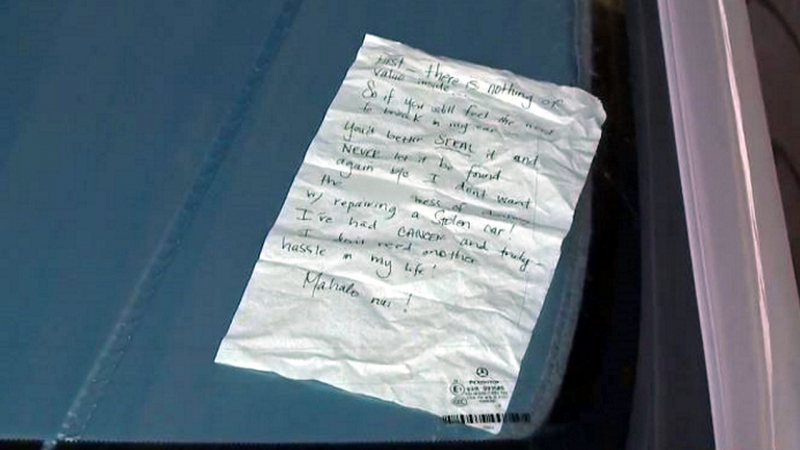 Psst — there is nothing of
value inside...
So if you still feel the need
to break in my car
You'd better STEAL it and
NEVER let it be found
again b/c I don't want
the mess of dealing
w/ repairing a Stolen car!
I've had CANCER and truly
I don't need another
hassle in my life!
Mahalo nui!